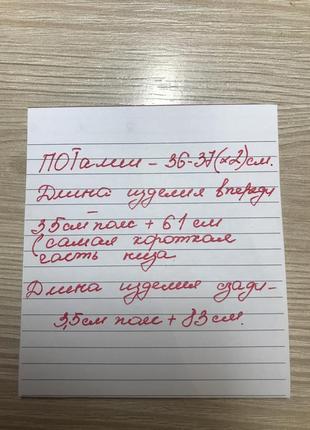 ПОТалии – 36-37(×2)см.
Длина изделия впереди
–
3,5см пояс + 61 см
(самая короткая
часть низа
Длина изделия сзади –
3,5см пояс + 83 см.